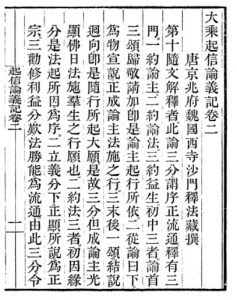 大乘起信論義記卷二
唐京兆府魏國西寺沙門釋法藏撰
第十隨文解釋者此論三分謂序正流通釋有三
門一約論主二約論法三約益生初中三者論首
三頌歸敬請加即是論主起行所依二從論曰下
為物宣說正成論主法施之行三末後一頌結說
迴向即是隨行所起大願是故三分但成論主光
顯佛日法施羣生之行願也二約法三者初因緣
分是法起所因為序二立義分下正顯所說為正
宗三勸修利益分歎法勝能為流通由此三分令
起信論義記卷二
一